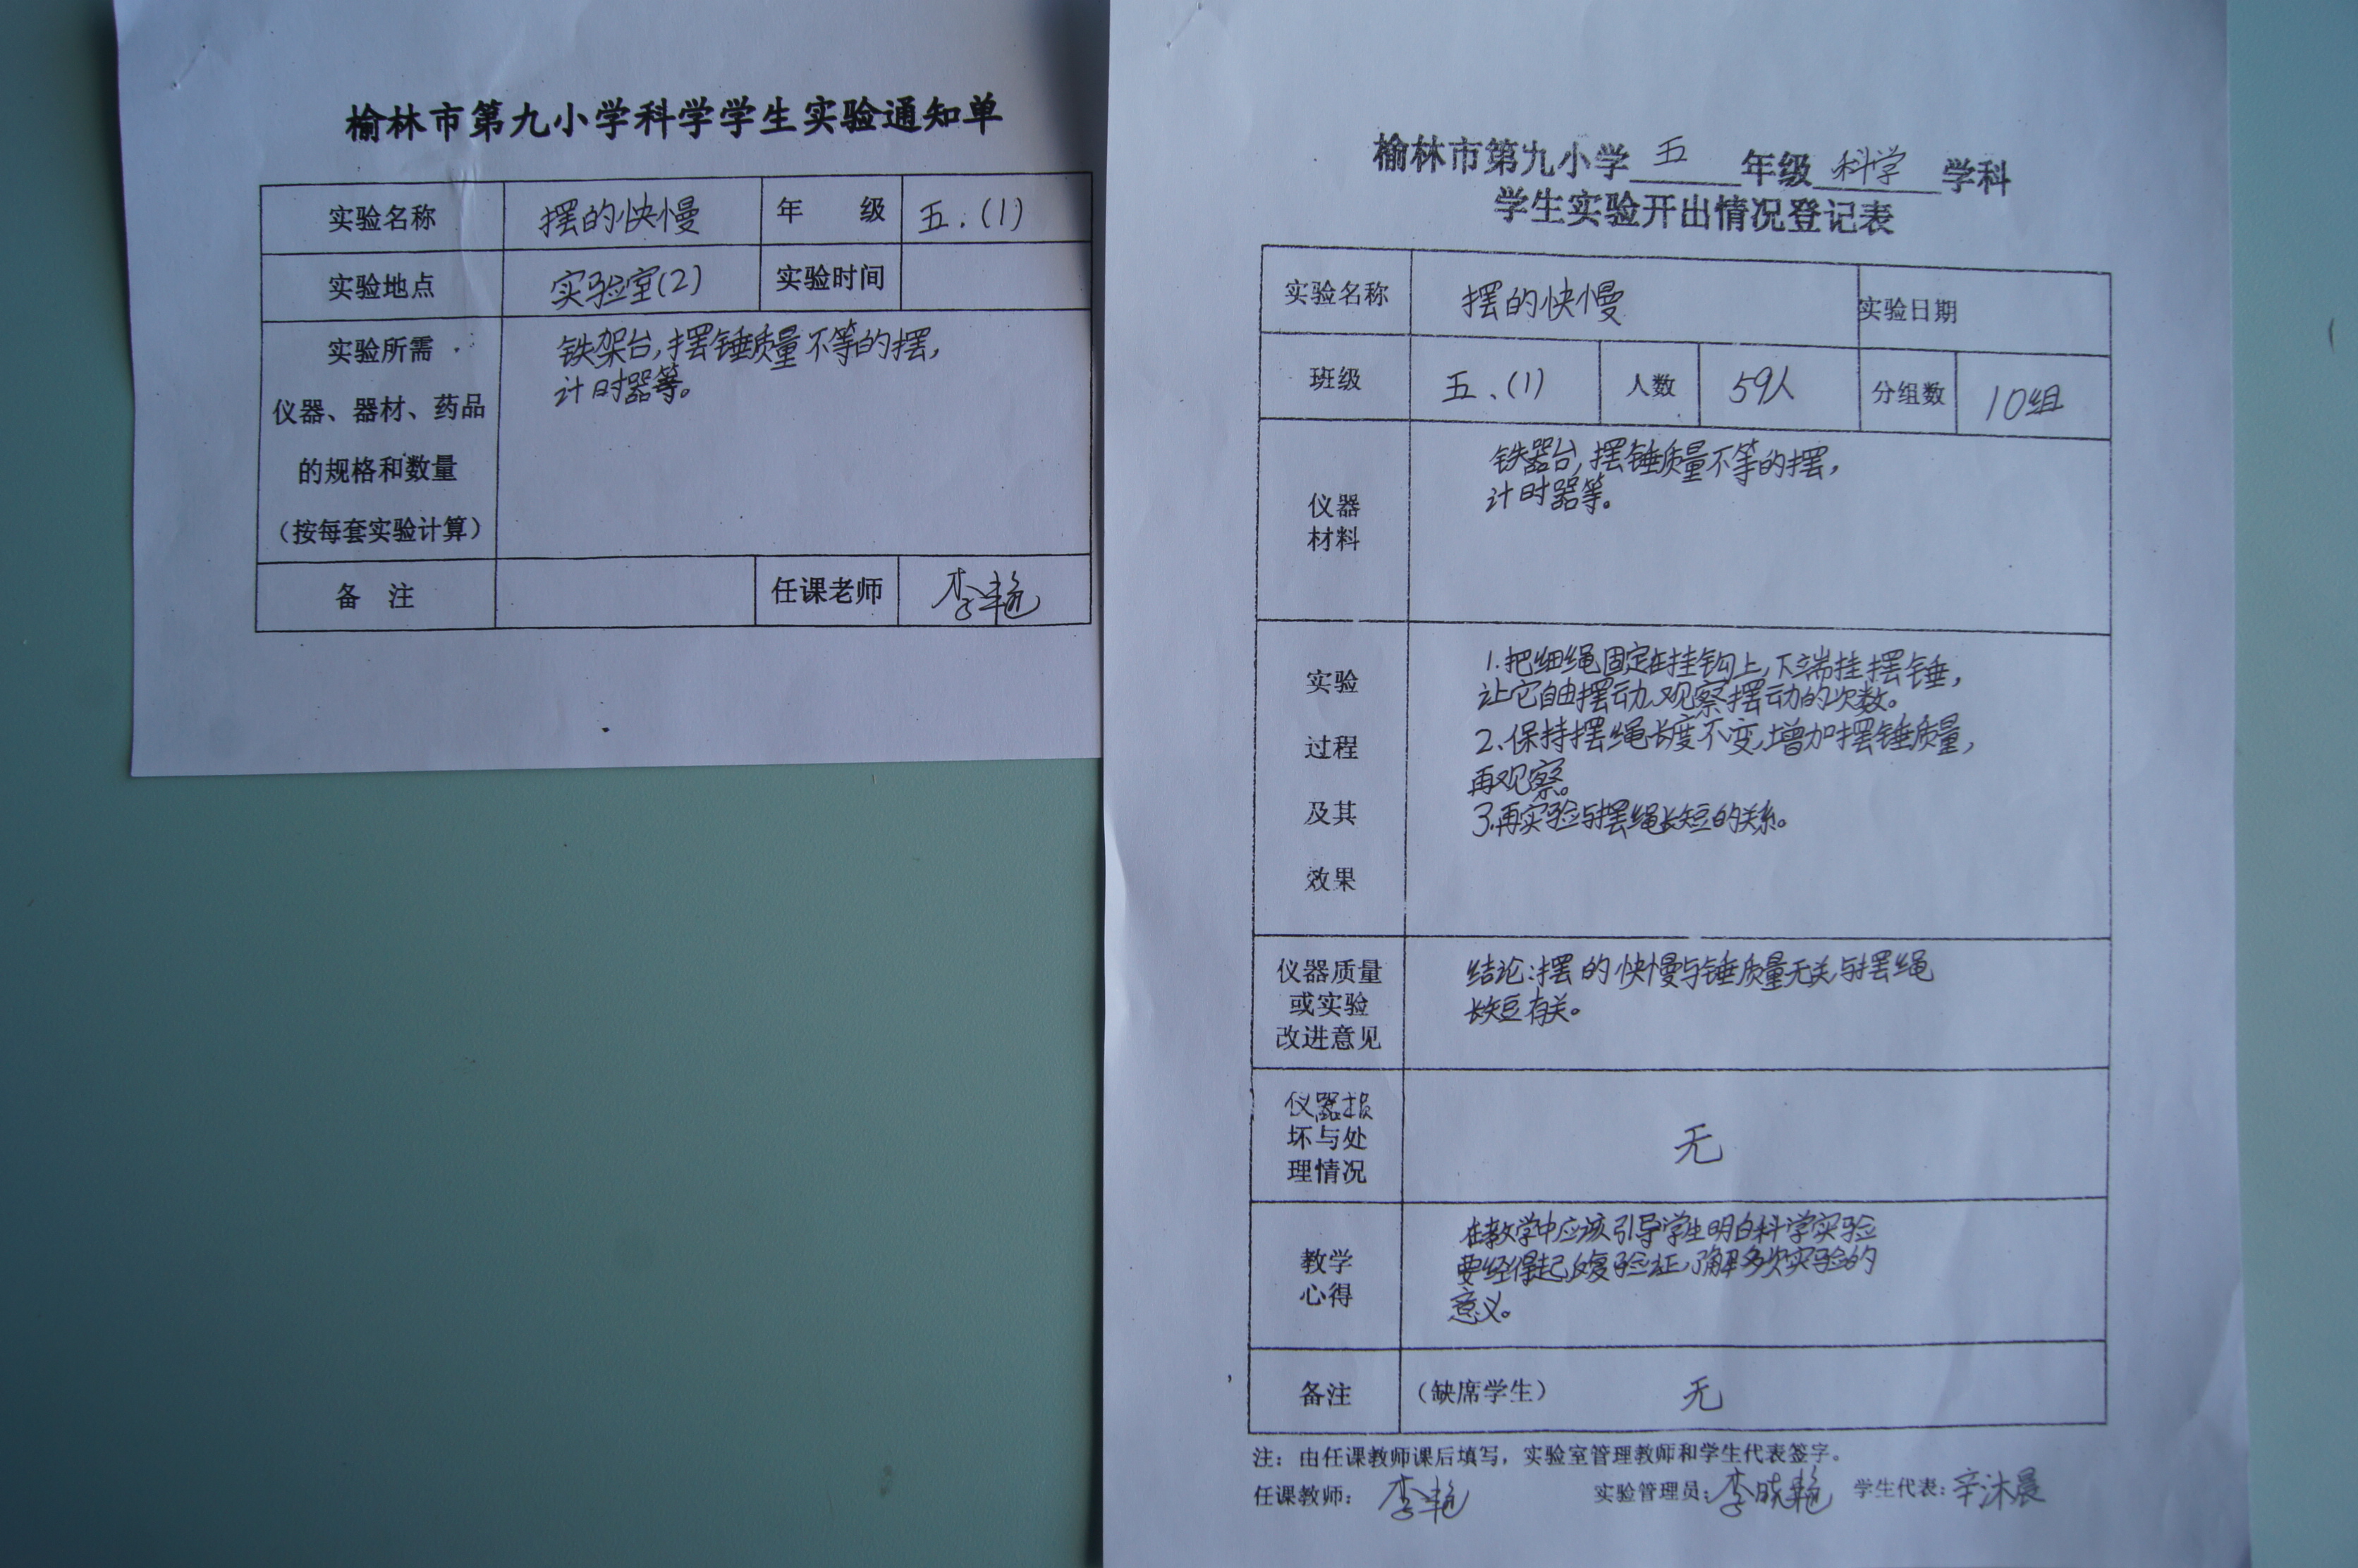 榆林市第九小学科学学生实验通知单
实验名称 摆的快慢 年 级 五.(1)
实验地点 实验室(2) 实验时间
实验所需
仪器、器材、药品
的规格和数量
(按每套实验计算)
铁架台,摆锤质量不等的摆,
计时器等。
备 注 任课老师 李艳
榆林市第九小学 五 年级 科学 学科
学生实验开出情况登记表
实验名称 摆的快慢 实验日期
班级 五.(1) 人数 59人 分组数 10组
仪器
材料
铁器台,摆锤质量不等的摆,
计时器等。
实验
过程
及其
效果
1.把细绳固定在挂钩上,下端挂摆锤,
让它自由摆动,观察摆动的次数。
2.保持摆绳长度不变,增加摆锤质量,
再观察。
3.再实验与摆绳长短的关系。
仪器质量
或实验
改进意见
结论:摆的快慢与锤质量无关,与摆绳
长短有关。
仪器损
坏与处
理情况
无
教学
心得
在教学中应该引导学生明白科学实验
要经得起反复验证,了解多次实验的
意义。
备注 (缺席学生) 无
注:由任课教师课后填写,实验室管理教师和学生代表签字。
任课教师: 李艳 实验管理员: 李晓艳 学生代表: 辛沐晨